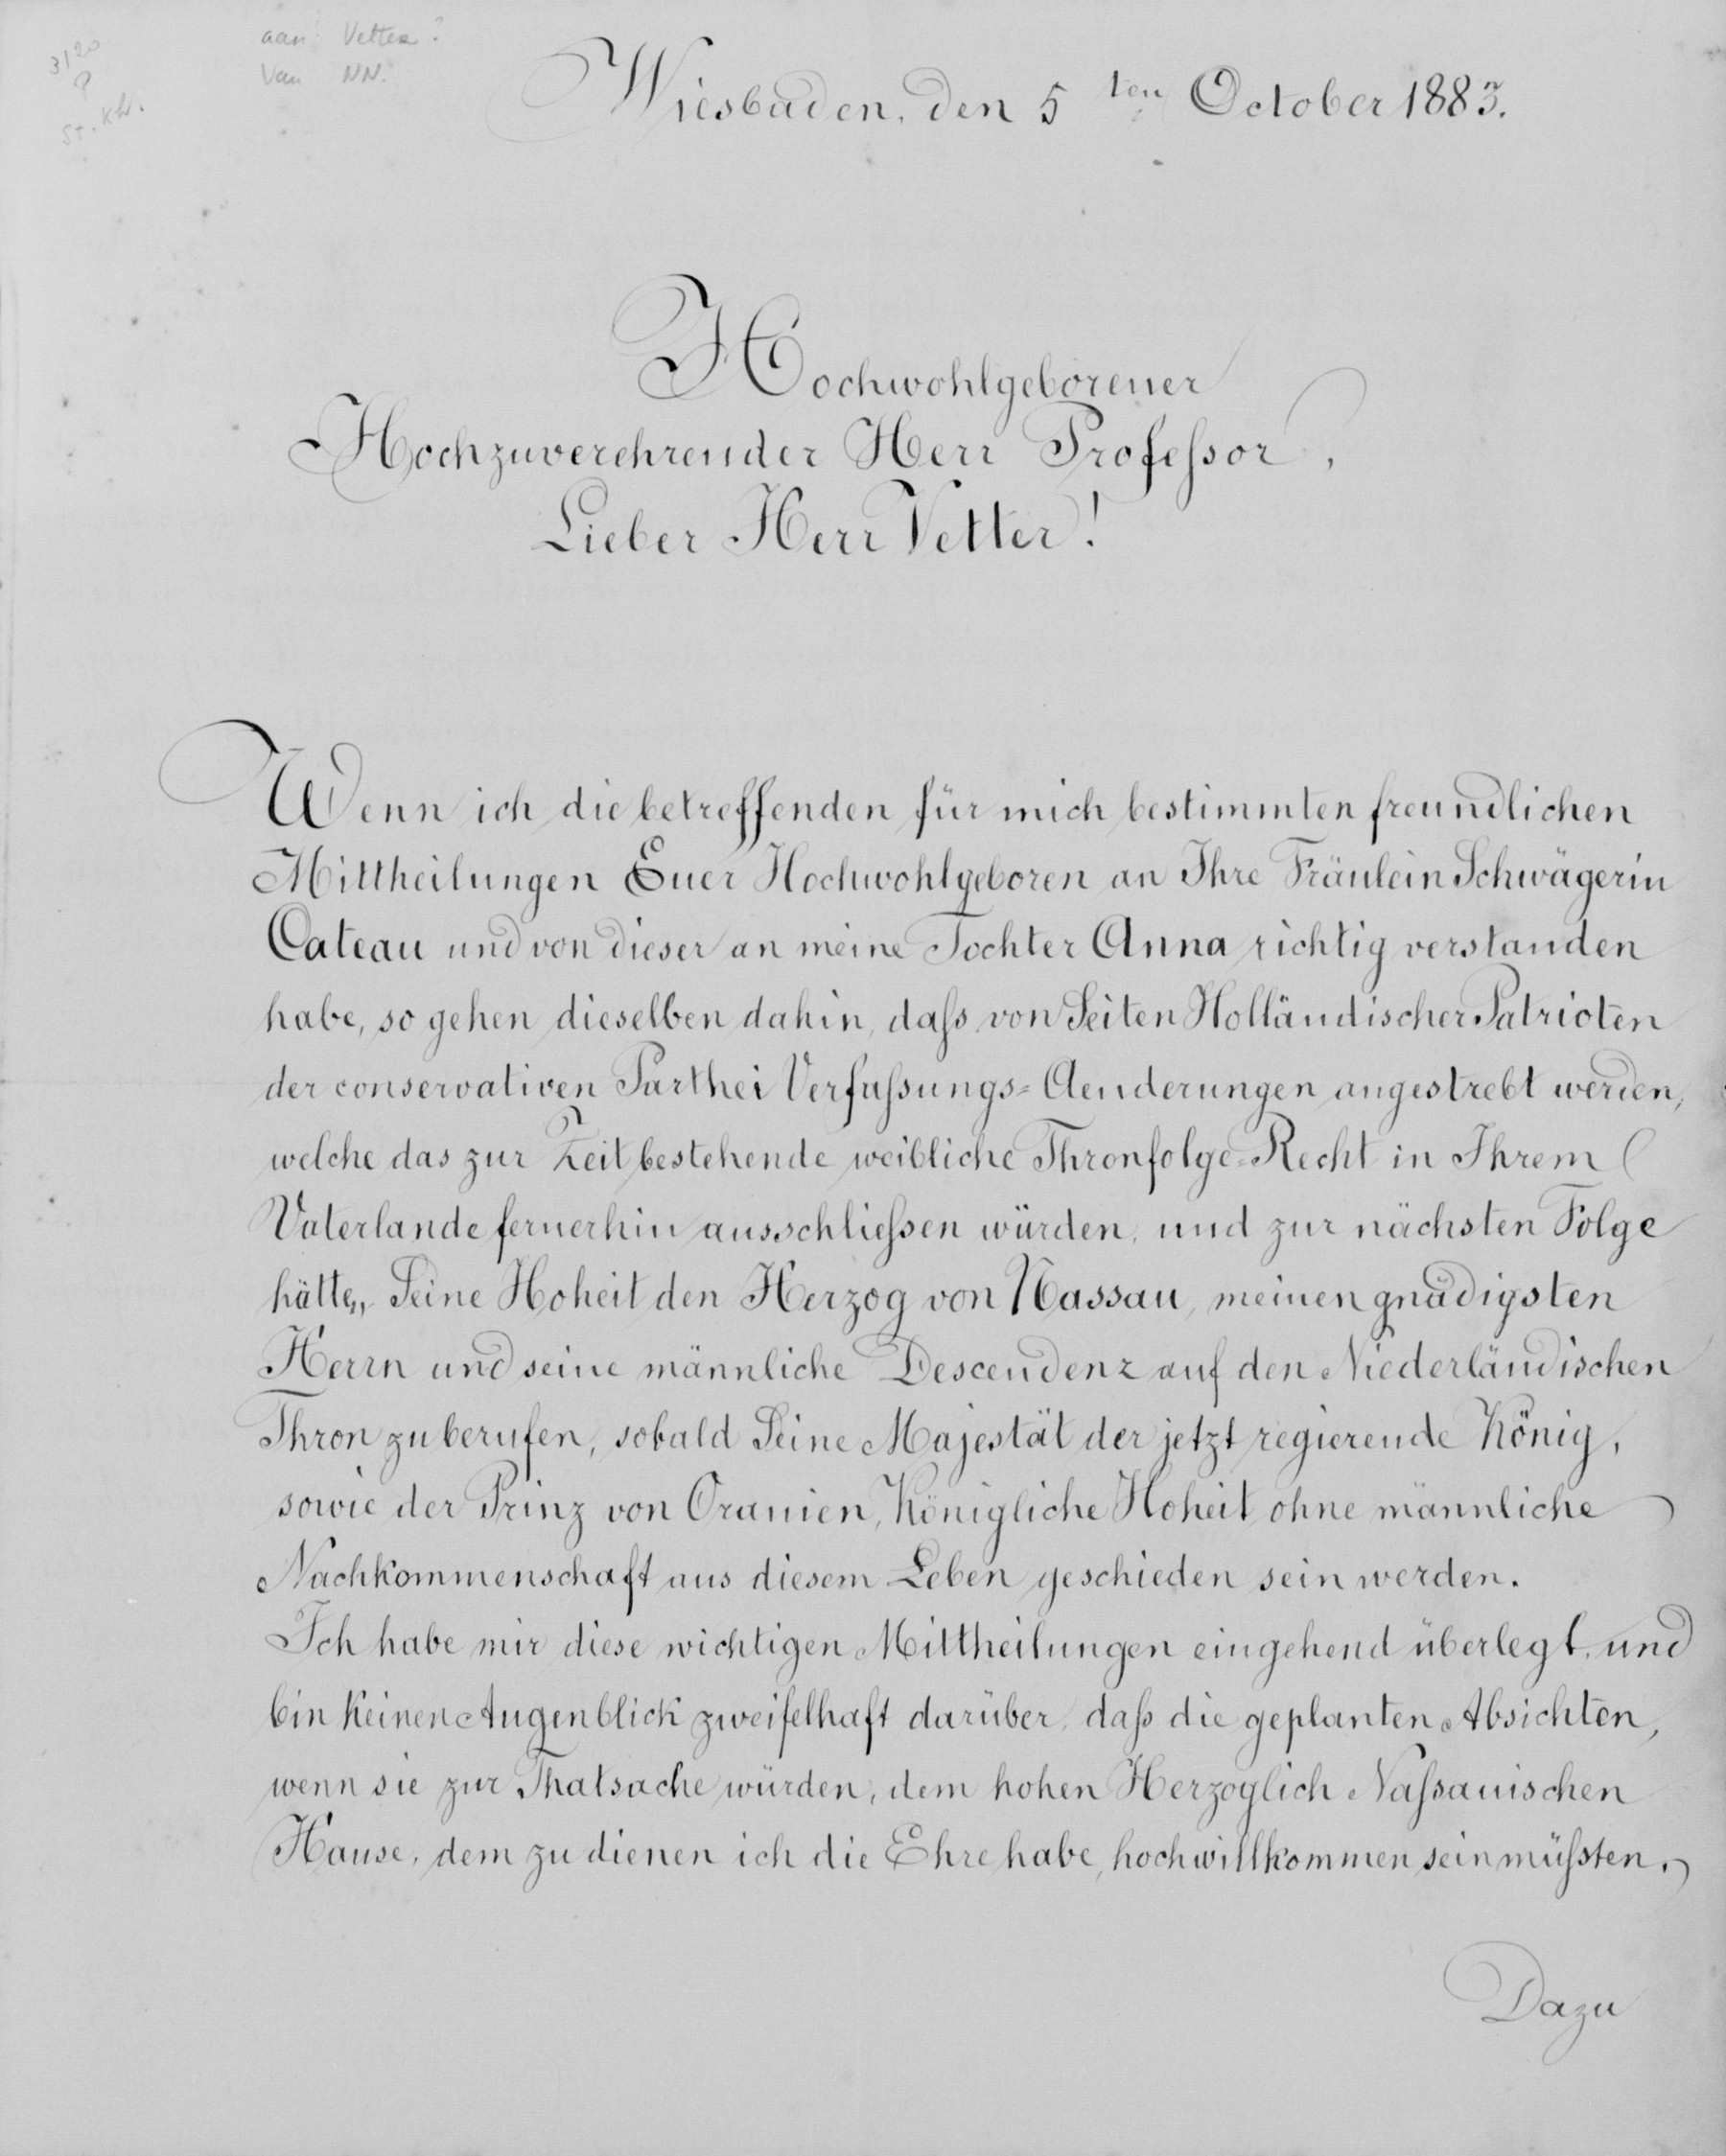 aan Vetter?
Van NN.
Wiesbaden, den 5ten October 1883.
Hochwohlgeborener
Hochzuverehrender Herr Profeſsor,
Lieber Herr Vetter!
Wenn ich die betreffenden für mich bestimmten freundlichen
Mittheilungen Euer Hochwohlgeboren an Ihre Fräulein Schwägerin
Cateau und von dieser an meine Tochter Anna richtig verstanden
habe, so gehen dieselben dahin, daſs von Seiten Holländischer Patrioten
der conservativen Parthei Verfaſsungs=Aenderungen angestrebt werden,
welche das zur Zeit bestehende weibliche Thronfolge=Recht in Ihrem
Vaterlande fernerhin ausschlieſsen würden, und zur nächsten Folge
hätten, Seine Hoheit den Herzog von Nassau, meinen gnädigsten
Herrn und seine männliche Descendenz auf den Niederländischen
Thron zu berufen, sobald Seine Majestät der jetzt regierende König,
sowie der Prinz von Oranien, Königliche Hoheit ohne männliche
Nachkommenschaft aus diesem Leben geschieden sein werden.
Ich habe mir diese wichtigen Mittheilungen eingehend überlegt, und
bin keinen Augenblick zweifelhaft darüber, daſs die geplanten Absichten,
wenn sie zur Thatsache würden, dem hohen Herzoglich Naſsauischen
Hause, dem zu dienen ich die Ehre habe, hochwillkommen sein müſsten.
Dazu